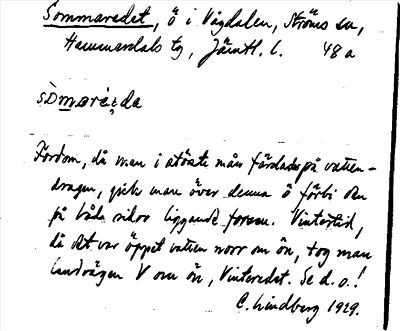 Sommaredet, ö i Vågdalen, Ströms sn,
Hammerdals tg, Jämtl. l. 48 a
sòmaré̩da
Fordom, då man i största mån färdades på vatten-
dragen, gick man över denna ö förbi den
på båda sidor liggande forsen. Vintertid,
då det var öppet vatten norr om ön, tog man
landvägen V om ön, Vinteredet. Se d. o.!
C. Lindberg 1929.